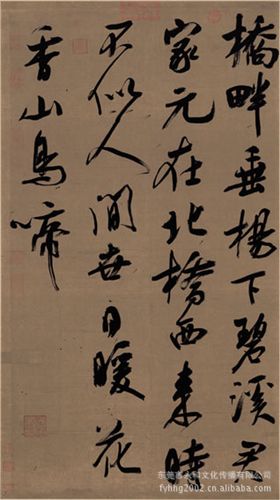 橋畔垂楊下碧溪君
家元在北橋西來時
不似人間世日暖花
香山鳥啼
文化传播有限公司
fyhhg2002.cn.alibaba.com